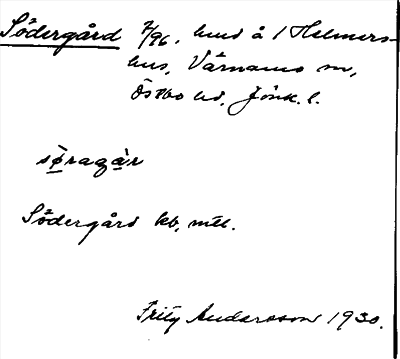 Södergård 7/96. hmd å 1 Helmers-
hus, Värnamo sn,
Östbo hd, Jönk. l.
søragàr
Södergård kb, mtl.
Fritz Andersson 1930.